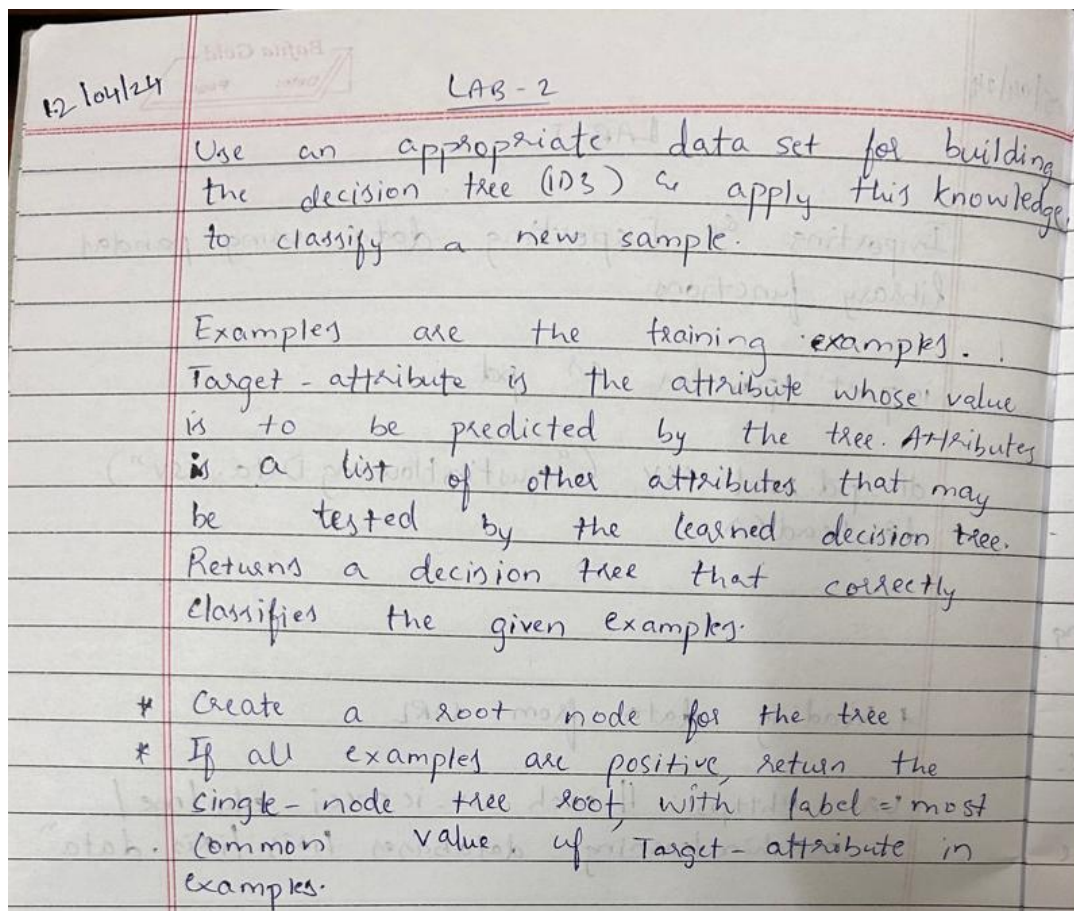 12/04/24
LAB - 2
Use an appropriate data set for building
the decision tree (ID3) & apply this knowledge
to classify a new sample.
Examples are the training examples.
Target - attribute is the attribute whose value
is to be predicted by the tree. Attributes
is a list of other attributes that may
be tested by the learned decision tree.
Returns a decision tree that correctly
classifies the given examples.
* Create a root node for the tree
* If all examples are positive, return the
single - node tree root, with label = most
common value of Target - attribute in
examples.